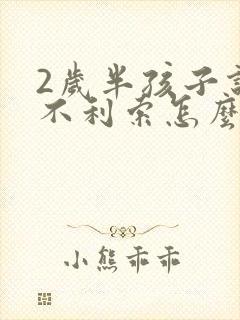 2歲半孩子
不利索怎麼
小熊乖乖